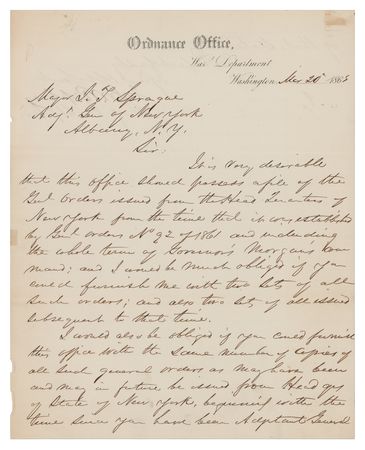 Ordnance Office,
War Department
Washington Mar 20 1863
Major J. T. Sprague
Adj. Gen of New York
Albany, N.Y.
Sir:
It is very desirable
that this office should possess a file of the
Genl Orders issued from the Head Quarters of
New York from the time that it was established
by Genl orders No 92 of 1861 and including
the whole term of Governor Morgan's Com
mand; and I would be much obliged if you
could furnish me with two sets of all
such orders; and also two sets of all issued
subsequent to that time.
I would also be obliged if you could furnish
this office with the same number of copies of
all such general orders as may have been
and may in future be issued from Head qrs
of State of New York, beginning with the
time since you have been Adjutant General